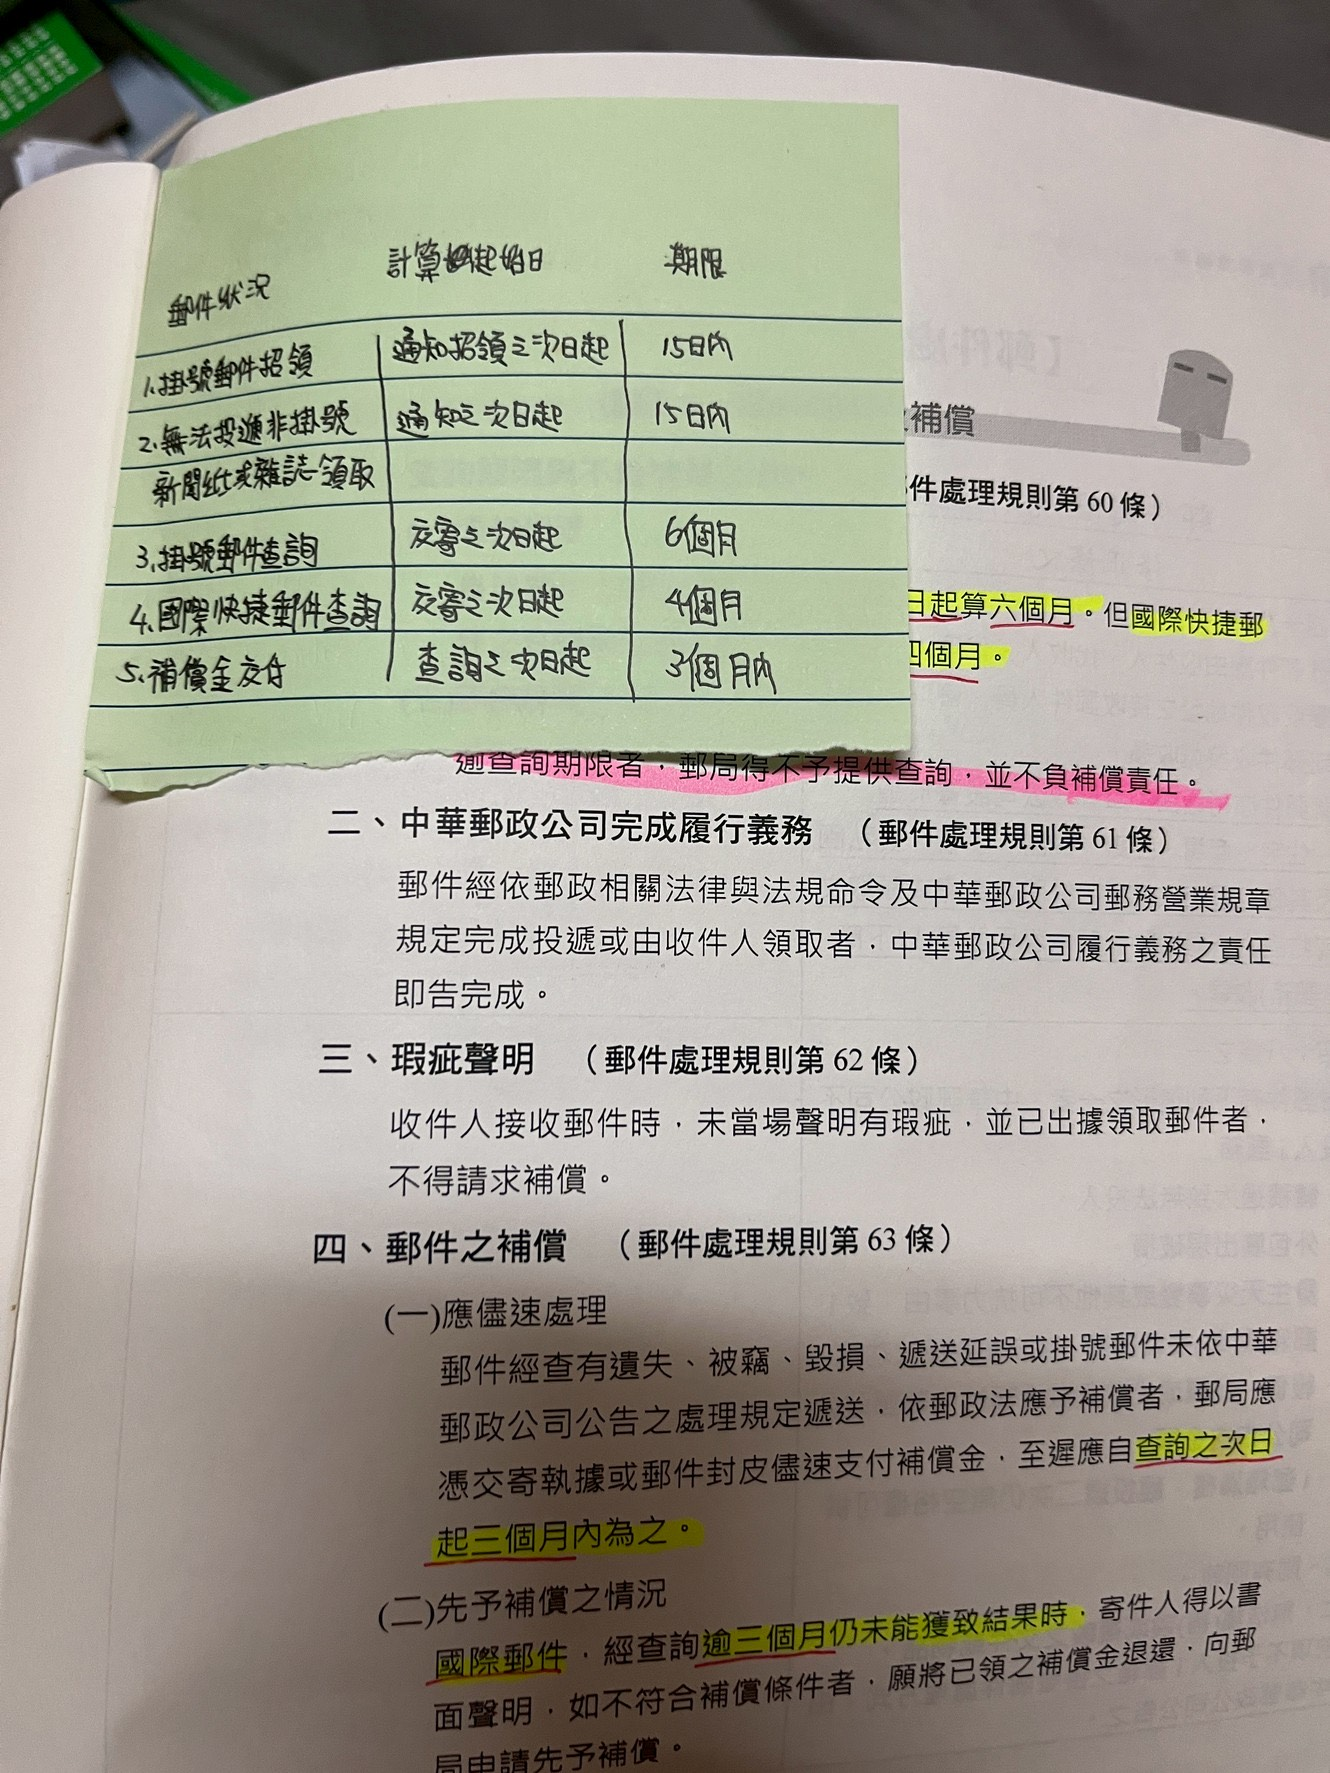 郵件狀況 計算起始日 期限
1.掛號郵件招領 通知招領之次日起 15日內
2.無法投遞非掛號 通知之次日起 15日內
新聞紙或雜誌領取
3.掛號郵件查詢 交寄之次日起 6個月
4.國際快捷郵件查詢 交寄之次日起 4個月
5.補償金交付 查詢之次日起 3個月內
補償
件處理規則第 60 條）
日起算六個月。但國際快捷郵
四個月。
逾查詢期限者，郵局得不予提供查詢，並不負補償責任。
二、中華郵政公司完成履行義務 （郵件處理規則第 61 條）
郵件經依郵政相關法律與法規命令及中華郵政公司郵務營業規章
規定完成投遞或由收件人領取者，中華郵政公司履行義務之責任
即告完成。
三、瑕疵聲明 （郵件處理規則第 62 條）
收件人接收郵件時，未當場聲明有瑕疵，並已出據領取郵件者，
不得請求補償。
四、郵件之補償 （郵件處理規則第 63 條）
(一)應儘速處理
郵件經查有遺失、被竊、毀損、遞送延誤或掛號郵件未依中華
郵政公司公告之處理規定遞送，依郵政法應予補償者，郵局應
憑交寄執據或郵件封皮儘速支付補償金，至遲應自查詢之次日
起三個月內為之。
(二)先予補償之情況
國際郵件，經查詢逾三個月仍未能獲致結果時，寄件人得以書
面聲明，如不符合補償條件者，願將已領之補償金退還，向郵
局申請先予補償。